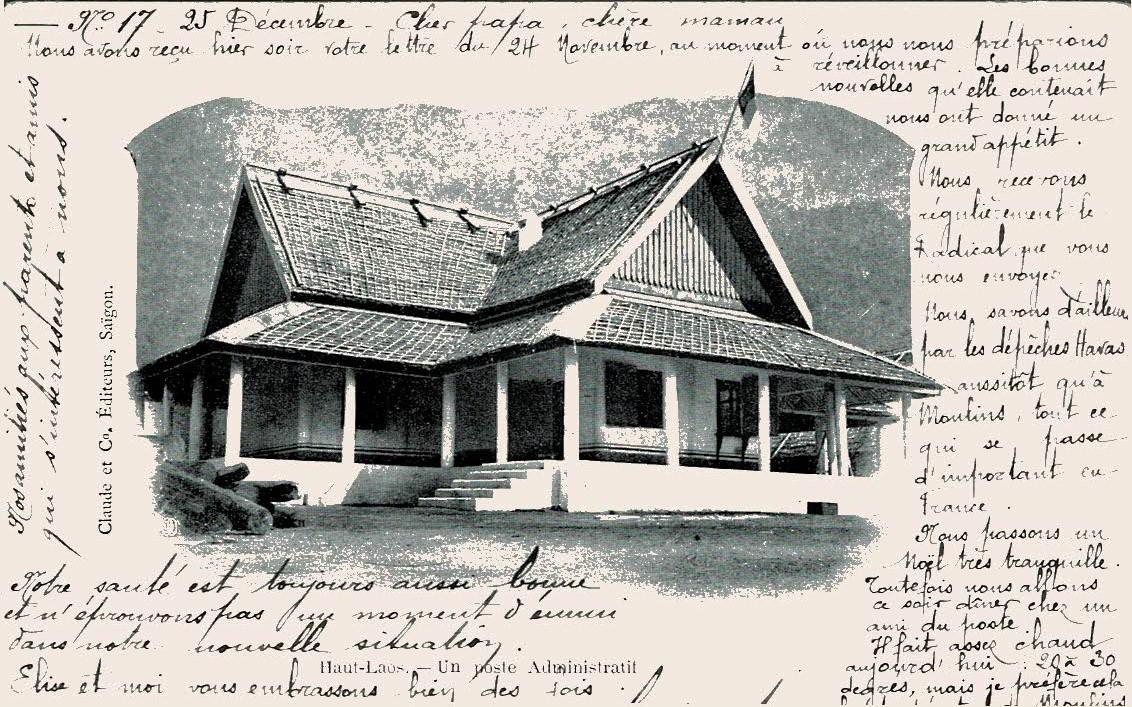 — No 17 25 Décembre - Cher papa, chère maman
Nous avons reçu hier soir votre lettre du 24 Novembre, au moment où nous nous préparions
à réveillonner. Les bonnes
nouvelles qu'elle contenait
nous ont donné un
grand appétit.
Nous recevons
régulièrement le
Radical que vous
nous envoyez
Nous savons d'ailleurs
par les dépêches Havas
aussitôt qu'à
Moulins, tout ce
qui se passe
d'important en
France.
Nous passons un
Noël très tranquille.
Toutefois nous allons
ce soir dîner chez un
ami du poste
Il fait assez chaud
aujourd'hui : 20 à 30
degrés, mais je préfère cela
Moulins
Notre santé est toujours aussi bonne
et n'éprouvons pas un moment d'ennui
dans notre nouvelle situation.
Elise et moi vous embrassons bien des fois.
Nos amitiés aux parents et amis
qui s'intéressent à nous.
Claude et Co. Éditeurs, Saïgon.
Haut-Laos. — Un poste Administratif